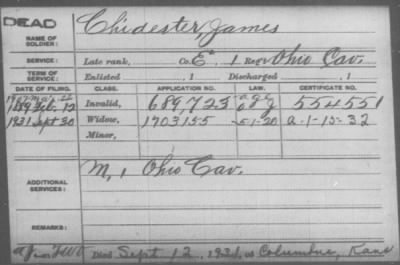 DEAD
NAME OF SOLDIER: Chidester, James
SERVICE: Late rank, Co. E, 1 Reg't Ohio Cav.
TERM OF SERVICE: Enlisted , 1 Discharged , 1
DATE OF FILING. CLASS. APPLICATION NO. LAW. CERTIFICATE NO.
1889 Feb. 12 Invalid, 689,723 554551
1931 Sept 30 Widow, 1703155 5-1-20 a-1-15-32
Minor,
ADDITIONAL SERVICES: M, 1 Ohio Cav.
REMARKS:
Died Sept 12, 1931, at Columbus, Kans